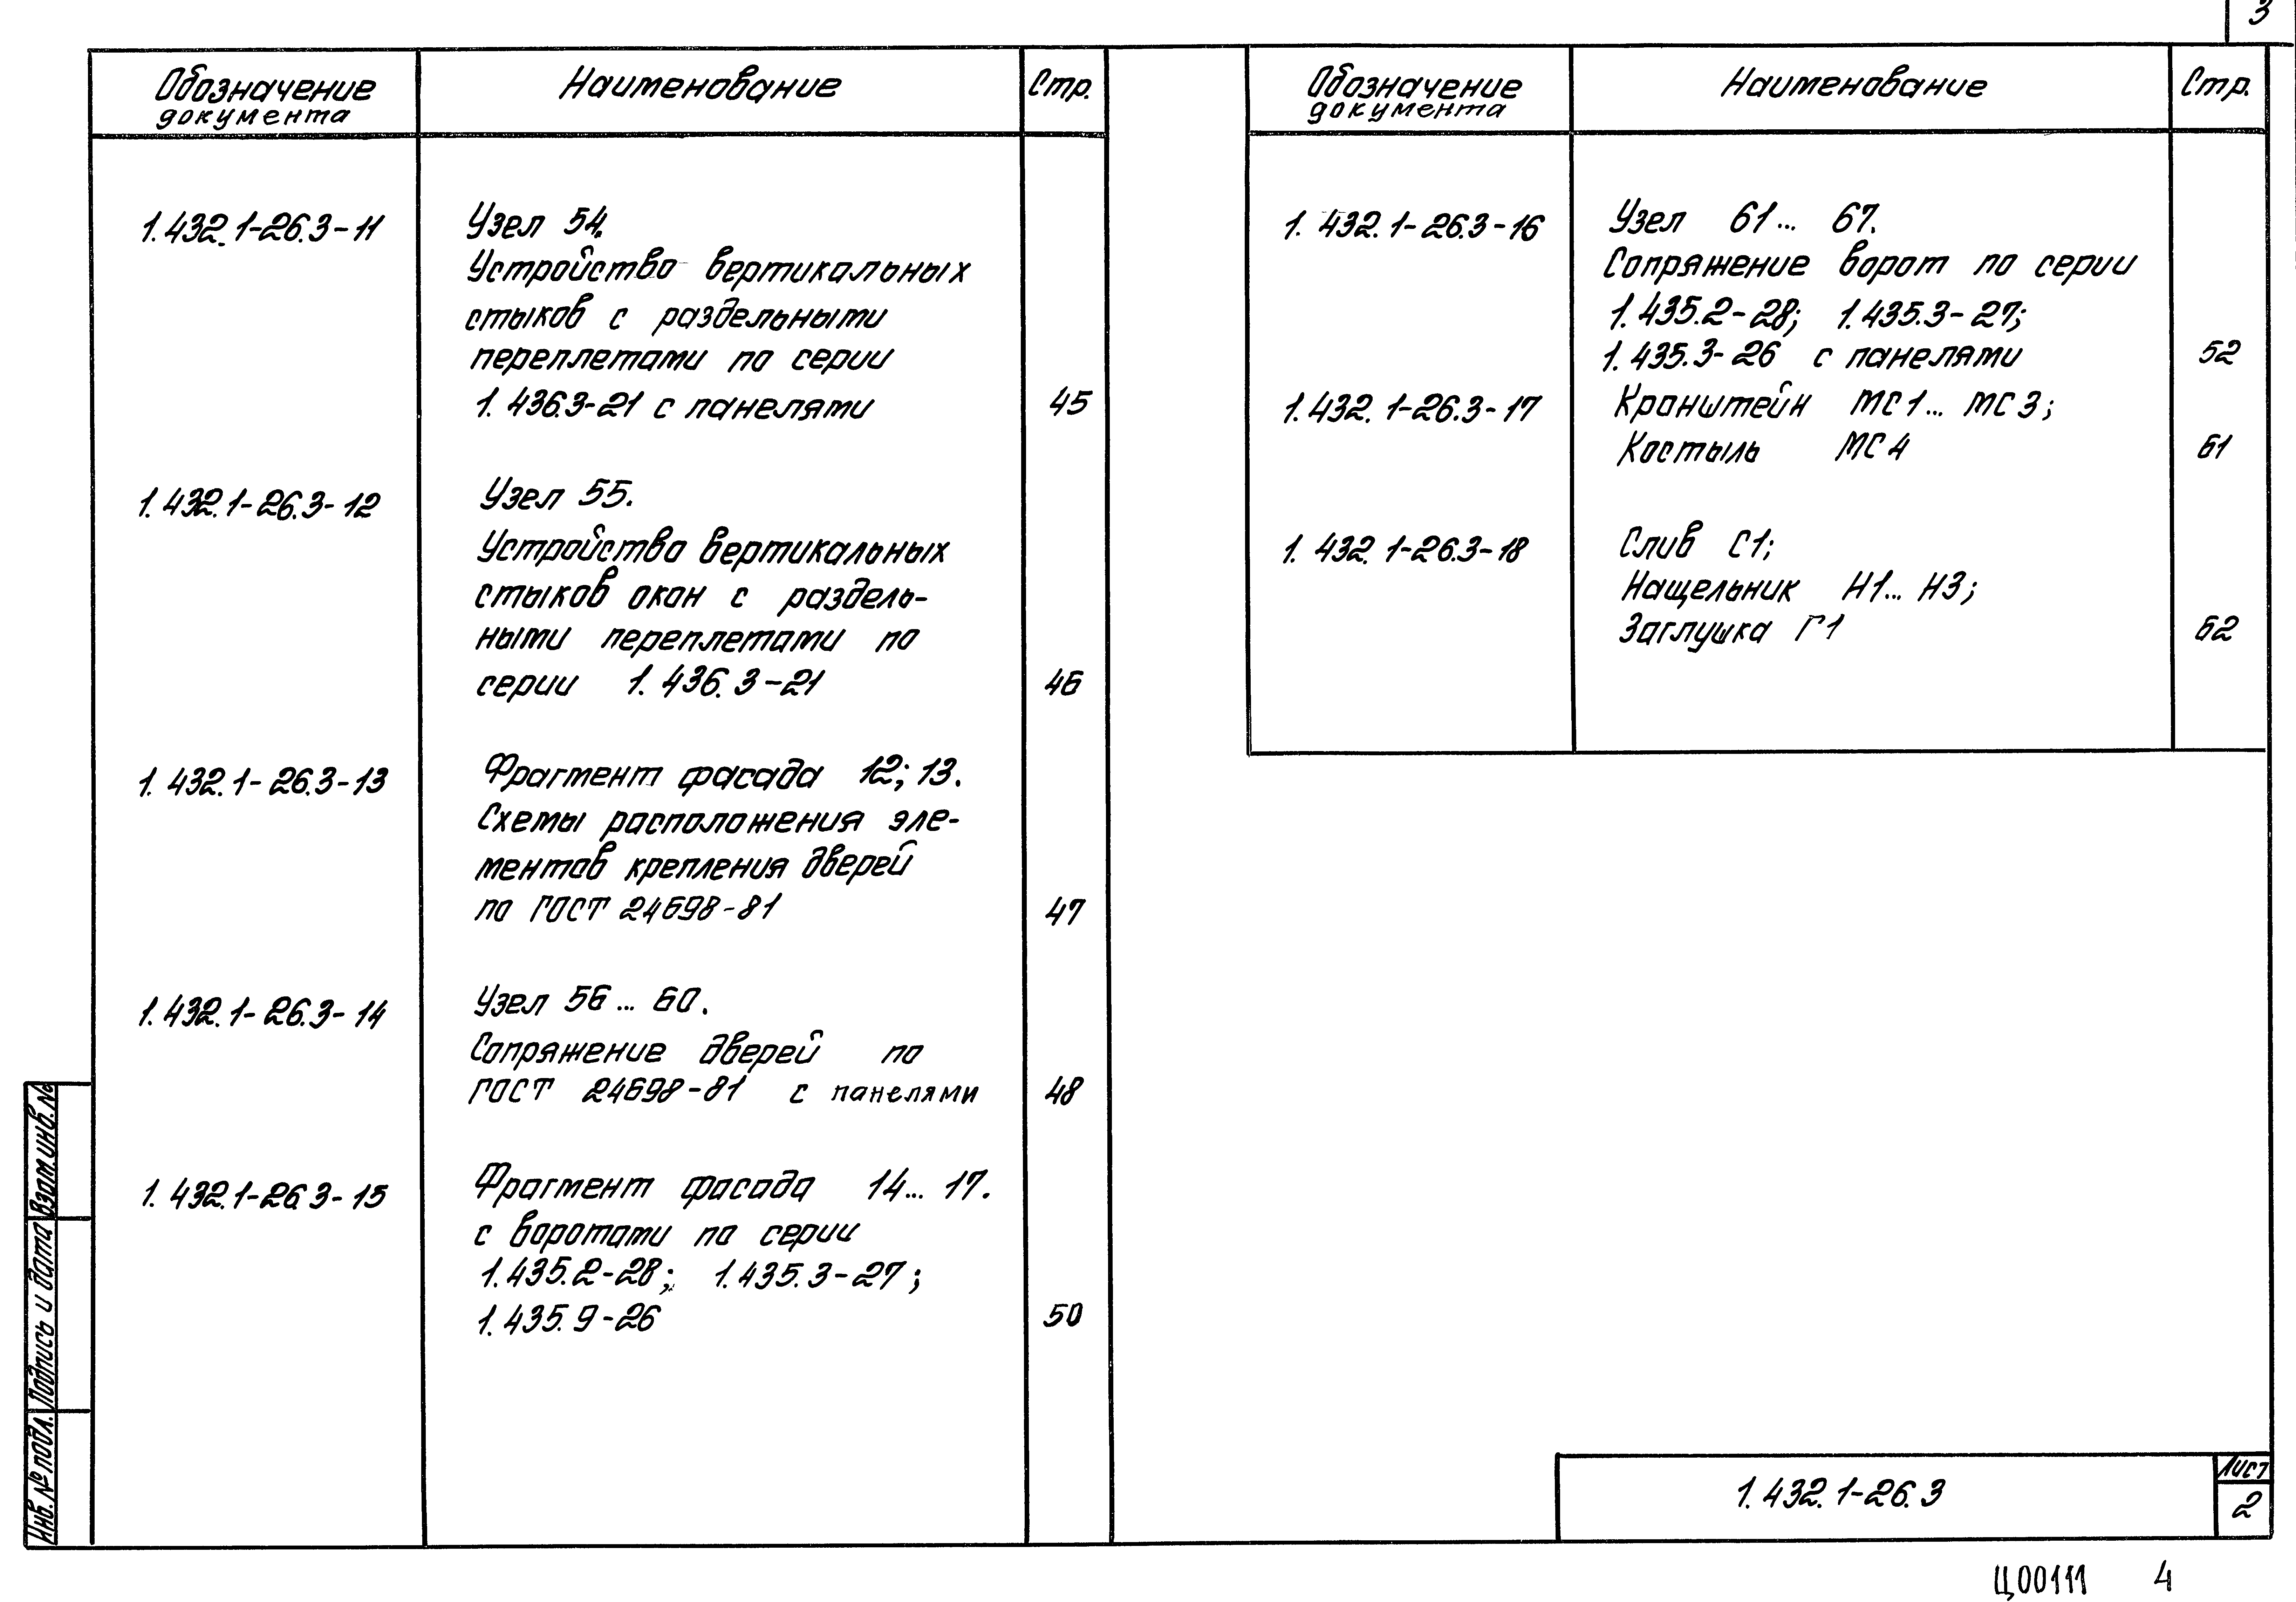 3
Обозначение
документа
Наименование
Стр.
1.432.1-26.3-11
Узел 54.
Устройство вертикальных
стыков с раздельными
переплетами по серии
1.436.3-21 с панелями
45
1.432.1-26.3-12
Узел 55.
Устройство вертикальных
стыков окон с раздель-
ными переплетами по
серии 1.436.3-21
46
1.432.1-26.3-13
Фрагмент фасада 12; 13.
Схемы расположения эле-
ментов крепления дверей
по ГОСТ 24698-81
47
1.432.1-26.3-14
Узел 56... 60.
Сопряжение дверей по
ГОСТ 24698-81 с панелями
48
1.432.1-26.3-15
Фрагмент фасада 14... 17.
с воротами по серии
1.435.2-28; 1.435.3-27;
1.435.9-26
50
Обозначение
документа
Наименование
Стр.
1.432.1-26.3-16
Узел 61... 67.
Сопряжение ворот по серии
1.435.2-28; 1.435.3-27;
1.435.3-26 с панелями
52
1.432.1-26.3-17
Кронштейн МС1... МС3;
Костыль МС4
61
1.432.1-26.3-18
Слив С1;
Нащельник Н1... Н3;
Заглушка Г1
62
Взам.инв.№
Подпись и дата
Инв.№ подл.
1.432.1-26.3
Лист
2
Ц00111 4